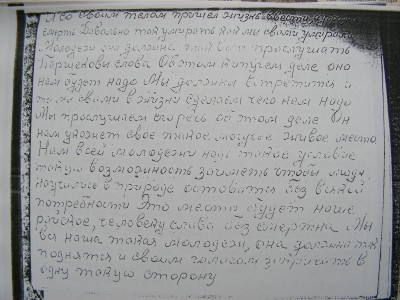 Я со своим телом пришел жизнь ввести а
смерть Довольно так умирать как мы с вами умирали
Молодежь она должна такой быть прослушать
Паршекова слова Об этом кипучем деле оно
нам будет надо Мы должны встретится и
там с вами в жизни сделаем чего нам надо
Мы прослушаем его речь об этом деле Он
нам укажет свое такое могучее живое место
Нам всей молодежи надо такое условие
такую возможность занять чтобы люди
научились в природе оставится без всякой
потребности Это место будет наше
райское, человеку слава бессмертна Мы
вся наша такая молодежь, она должна так
поднятся и своим голосом закричать в
одну такую сторону